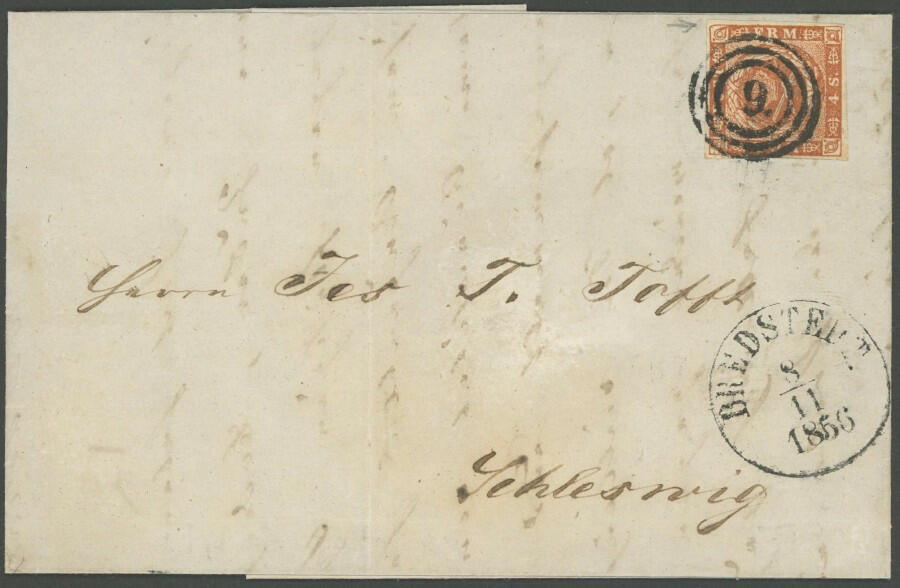 FRM
4 S.
9.
Herrn Jes T. Tofft
BREDSTEDT
8/11
1856
Schleswig